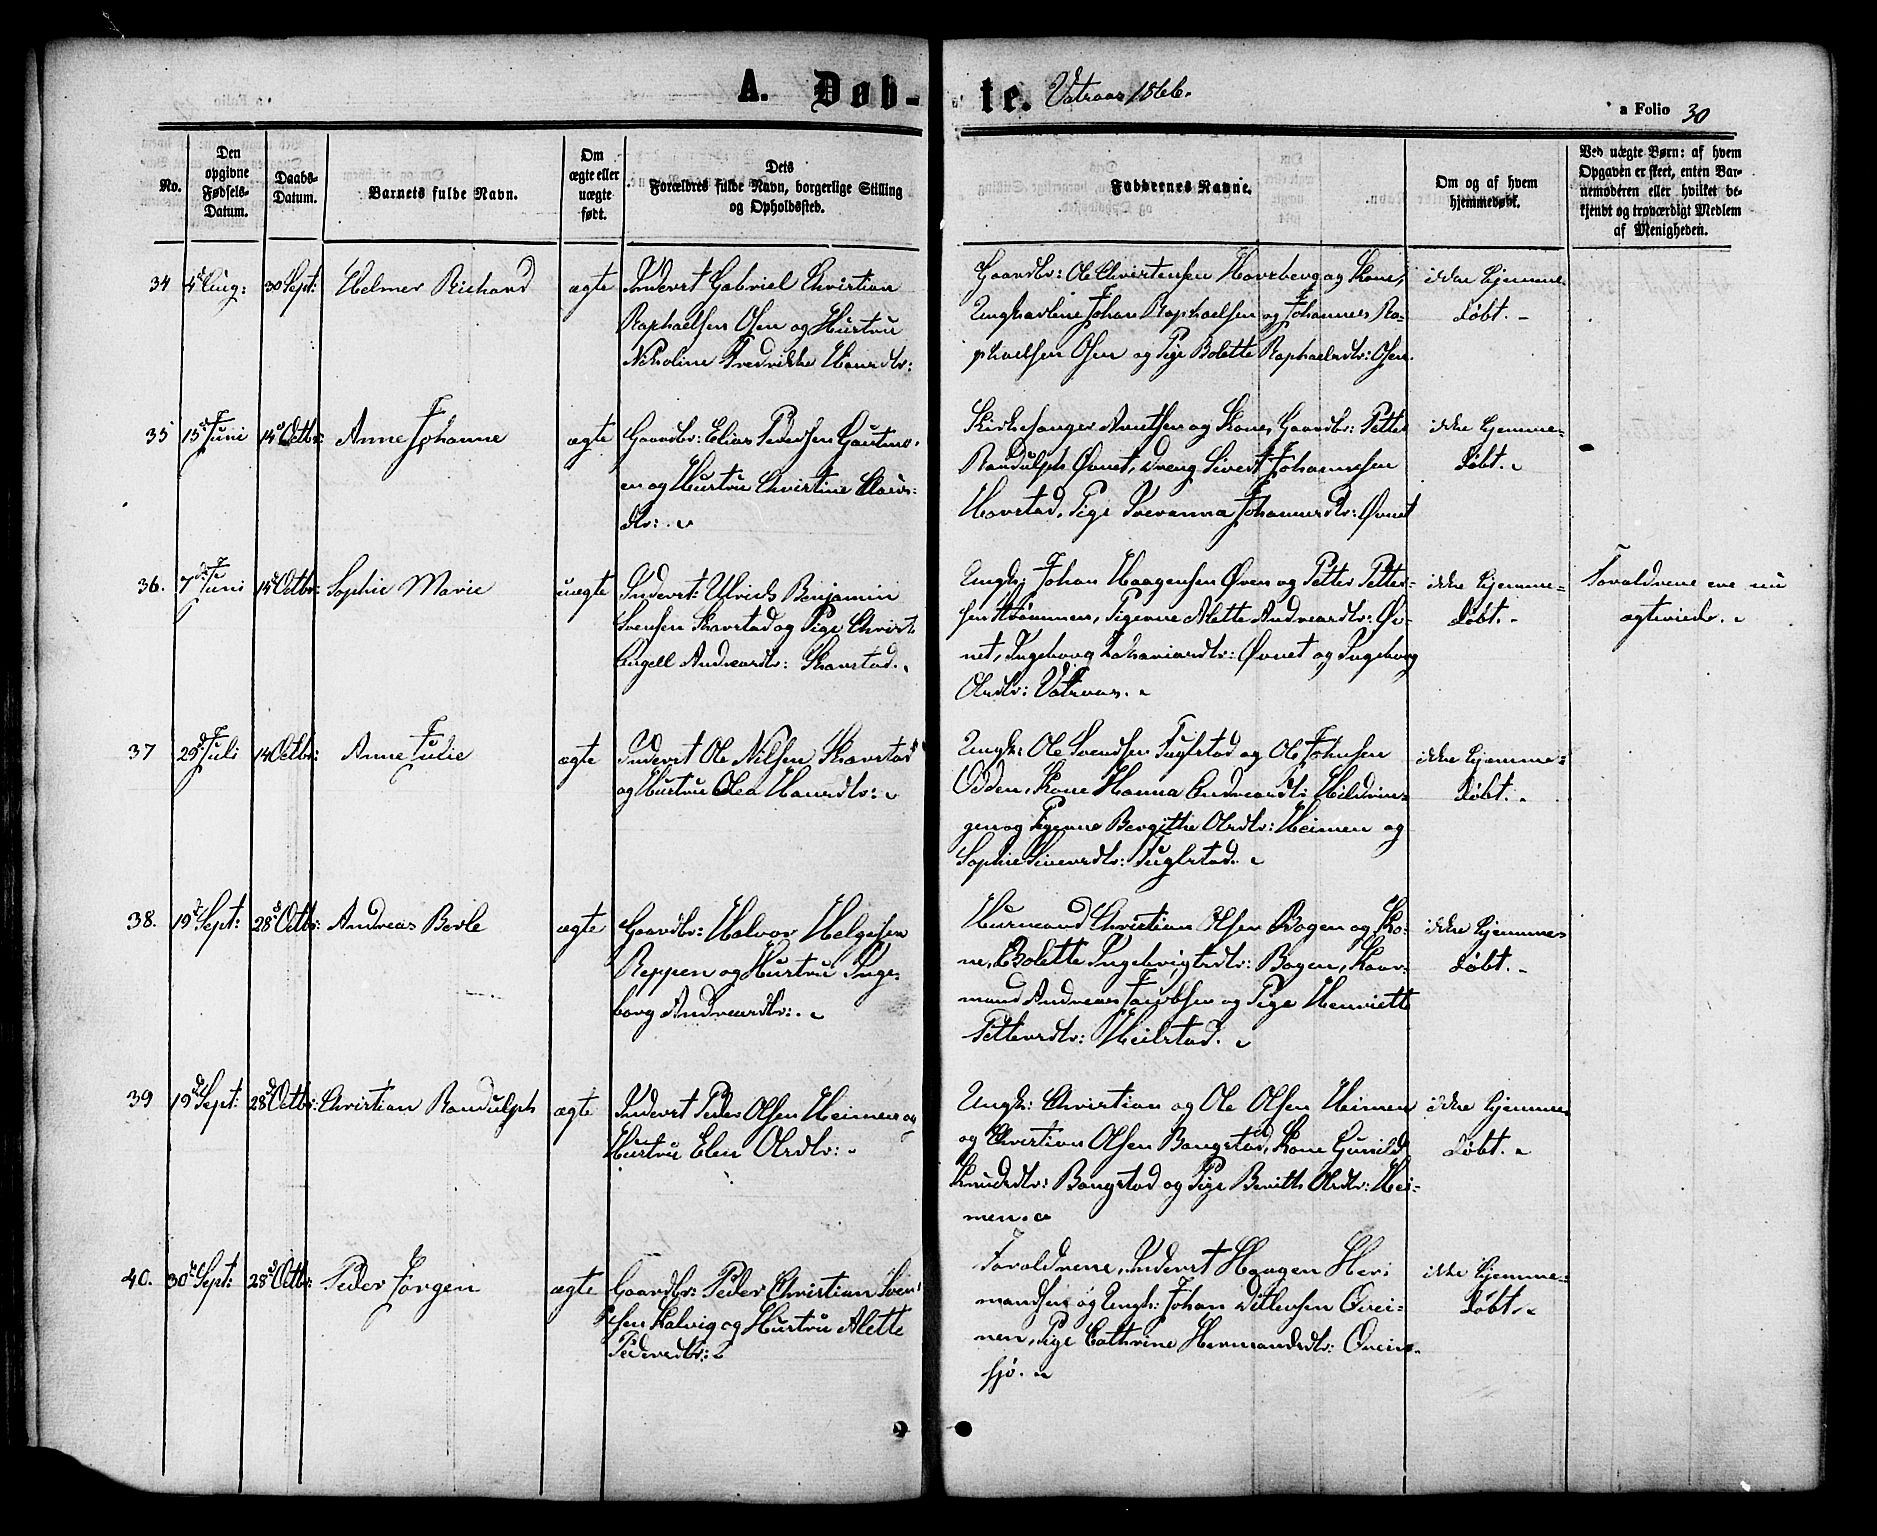 A. Døb-te. Vatvaas 1866.
a Folio 30
No.
Den opgivne Fødsels-Datum.
Daabs-Datum.
Barnets fulde Navn.
Om ægte eller uægte født.
Dets Forældres fulde Navn, borgerlige Stilling og Opholdssted.
Faddernes Navne.
Om og af hvem hjemmedøbt.
Ved uægte Børn: af hvem Opgaven er skeet, enten Barnemoderen eller hvilket bekjendt og troværdigt Medlem af Menigheden.
34 4d Aug: 30 Sept: Helmer Richard ægte Inderst Gabriel Christian
Raphaelsen Osen og Hustru
Nikoline Fredrikke Hansdtr:
Gaardbr: Ole Christensen Hovsberg og Kone,
Ungkarlene Johan Raphaelsen og Johannes Ra-
phaelsen Osen og Pige Bolette Raphaelsdtr: Osen.
ikke hjemme-
døbt. -
35 15d Juni 14d Octbr: Anne Johanne ægte Gaardbr: Elias Pedersen
en og Hustru Christine Claus-
dtr:.
Kirkesanger Arntsen og Kone, Gaardbr: Petter
Randulph Øvnet, Dreng Sivert Johannesen
Havstad, Pige Johannesdtr: Øvnet
ikke hjemme-
døbt.
36. 7d Juni 14d Octbr: Sophie Marie uægte Inderst: Ulrich Benjamin
Svensen Skarstad og Pige Christ.
Angell Andreasdtr: Skarstad.
Ungk; Johan Haagensen Øven og Petter Petter-
sen Strømmen, Pigerne Alette Andreasdtr: Øv-
net, Ingeborg Zakariasdtr: Øvnet og Ingeborg
Olsdtr: Vatvaas.
ikke hjemme-
døbt. -
Forældrene ere nu
ægteviede.
37 29d Juli 14 Octbr: Anne Julie ægte Inderst Ole Nilsen Skarstad
og Hustru Olea Hansdtr:
Ungk: Ole Svendsen Fuglstad og Ole Johnsen
Odden, Kone Hanna Andreasdtr: Hildrin-
gen og Pigerne Bergithe Olsdtr: Heimen og
Sophie Siversdtr: Fuglstad.
ikke hjemme-
døbt.
38. 19d Sept: 28d Octbr: Andreas Berle ægte Gaardbr: Halvor Helgesen
Reppen og Hustru Inge-
borg Andreasdtr:.
Husmand Christian Olsen Bogen og Ko-
ne, Bolette Ingebrigtsdtr: Bogen, Kaar-
mand Andreas Jacobsen og Pige Henriette
Pettersdtr: Heilstad.
ikke hjemme-
døbt. -
39 19d Sept: 28d Octbr: Christian Randulph ægte Inderst Peder Olsen Heimen og
Hustru Elen Olsdtr:
Ungk: Christian og Ole Olsen Heimen
og Christian Olsen Bangstad, Kone Gunild
Knudsdtr: Bangstad og Pige Berith Olsdtr: Hei-
men.
ikke hjemme-
døbt.
40. 30d Sept: 28d Octbr: Peder Jørgen ægte Gaardbr: Peder Christian Iver-
sen Kalvig og Hustru Alette
Pedersdtr:
Forældrene, Inderst Haagen Her-
mandsen og Ungk: Johan Ditlevsen Øvei-
nen, Pige Cathrine Hermandsdtr: Øvein-
sjø.
ikke hjemme-
døbt.